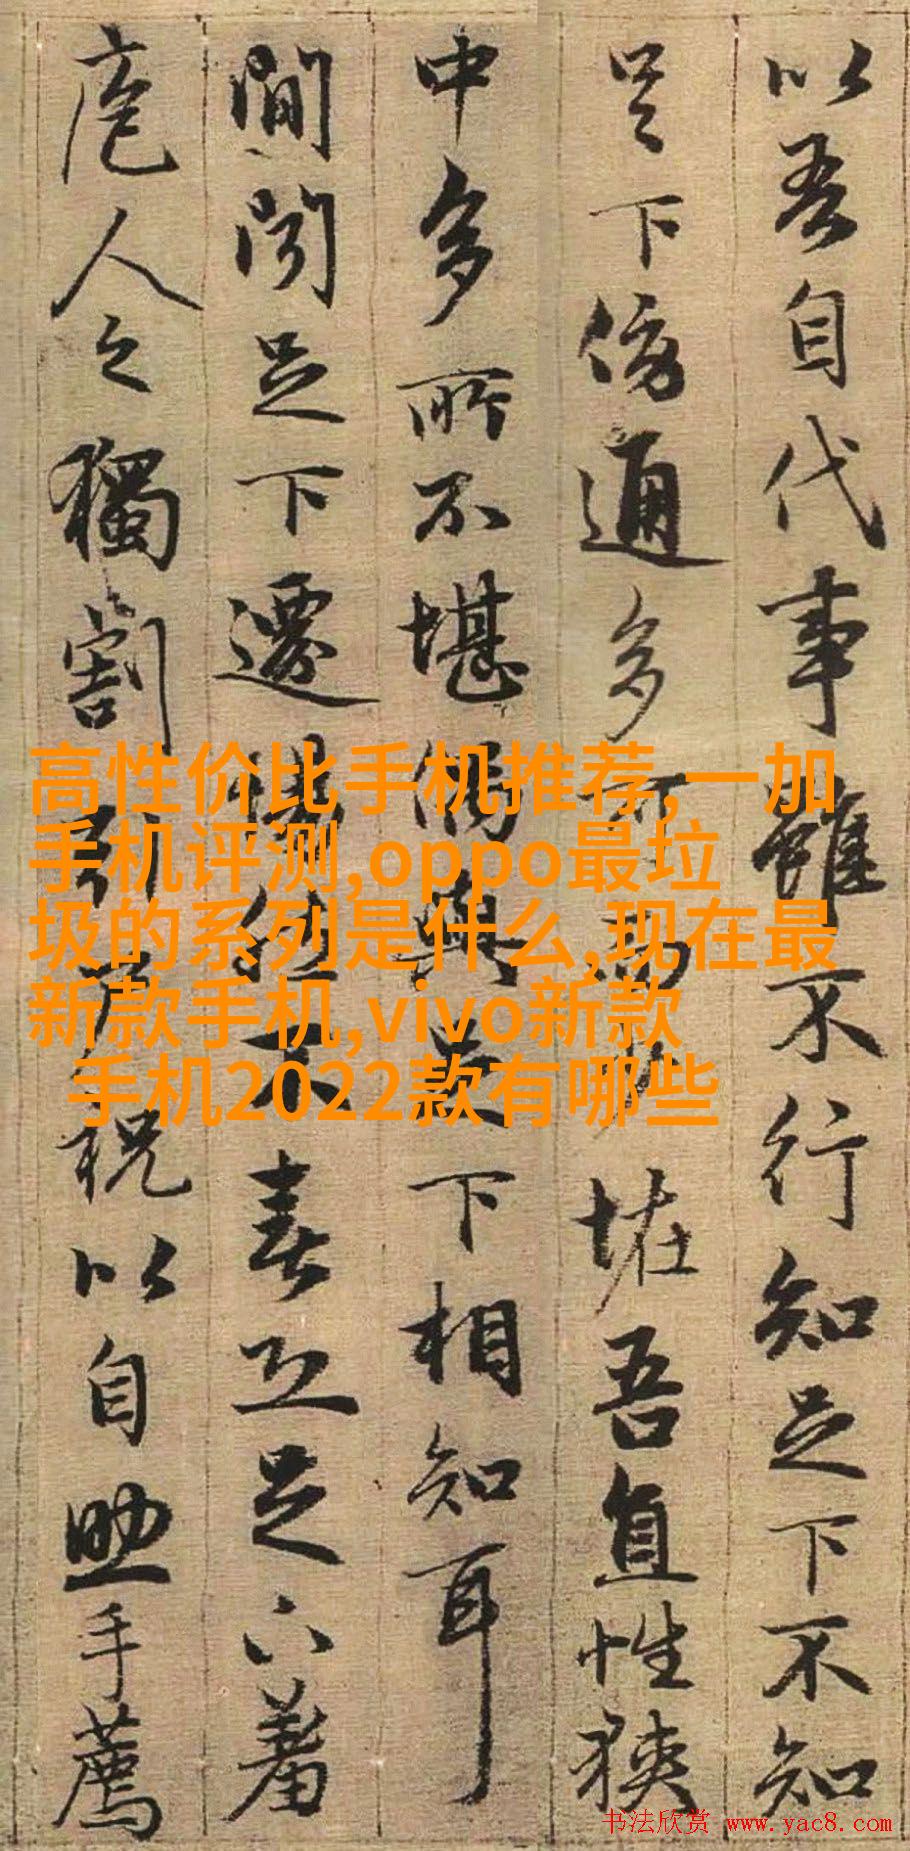 以吾自代事雖不行知足下不知
足下傍通多可而少恠吾直性狹
中多所不堪偶與足下相知耳
間聞足下遷惕然不喜恐足下羞
庖人之獨割引尸祝以自助手薦
高性价比手机推荐,一加
手机评测,oppo最垃
圾的系列是什么,现在最
新款手机,vivo新款
手机2022款有哪些
书法欣赏 www.yac8.com